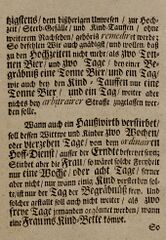 tzigstens, dem bißherigen Unwesen, zur Hoch-
zeit, Sterb-Gefäll, und Kind-Tauffen, ohne
weiteren Nachsehen, gehörig remedirt werde;
So befehlen Wir auch gnädigst, und wollen, daß
zu den Hochzeiten nicht mehr, als zwo Ton-
nen Bier, und zwo Tage, bey einer Be-
gräbnüß eine Tonne Bier, und ein Tag,
wie auch bey den Kind-Tauffen nur eine
Tonne Bier, und ein Tag, weiter aber
nichts bey arbitrairer Straffe zugelassen wer-
den solle.
Wann auch ein Haußwirth verstirbet,
soll dessen Wittwe und Kinder zwo Wochen,
oder vierzehen Tage, von dem ordinairen
Hoff-Dienst, ausser der Erndte befreyet seyn,
Stirbet aber die Frau, so wäret solche Freyheit
nur eine Woche, oder acht Tage, ferner
aber nicht, nur wann eines Kind verstorben
solle es nur den Tag der Begräbnüß frey, und
solcher gestalt soll auch nicht weiter, als zwo
freye Tage jemanden gegönnet werden, wann
eine Frau ins Kind-Bette komt.
So